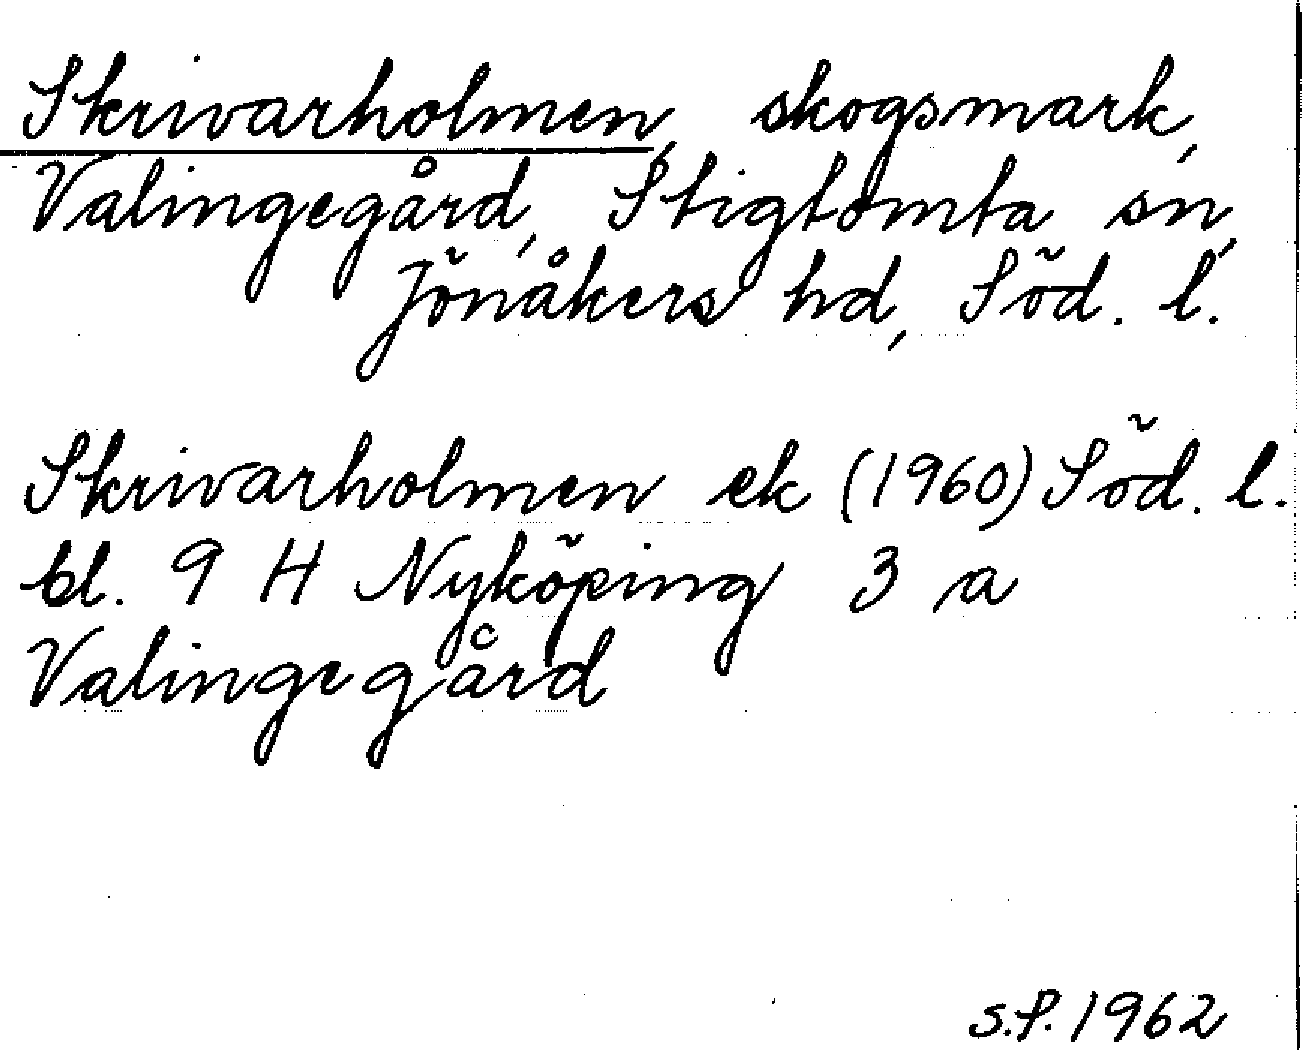 Skrivarholmen, skogsmark,
Valingegård, Stigtomta sn,
Jönåkers hd, Söd. l.
Skrivarholmen ek (1960) Söd. l.
bl. 9 H Nyköping 3 a
Valingegård
S.P. 1962